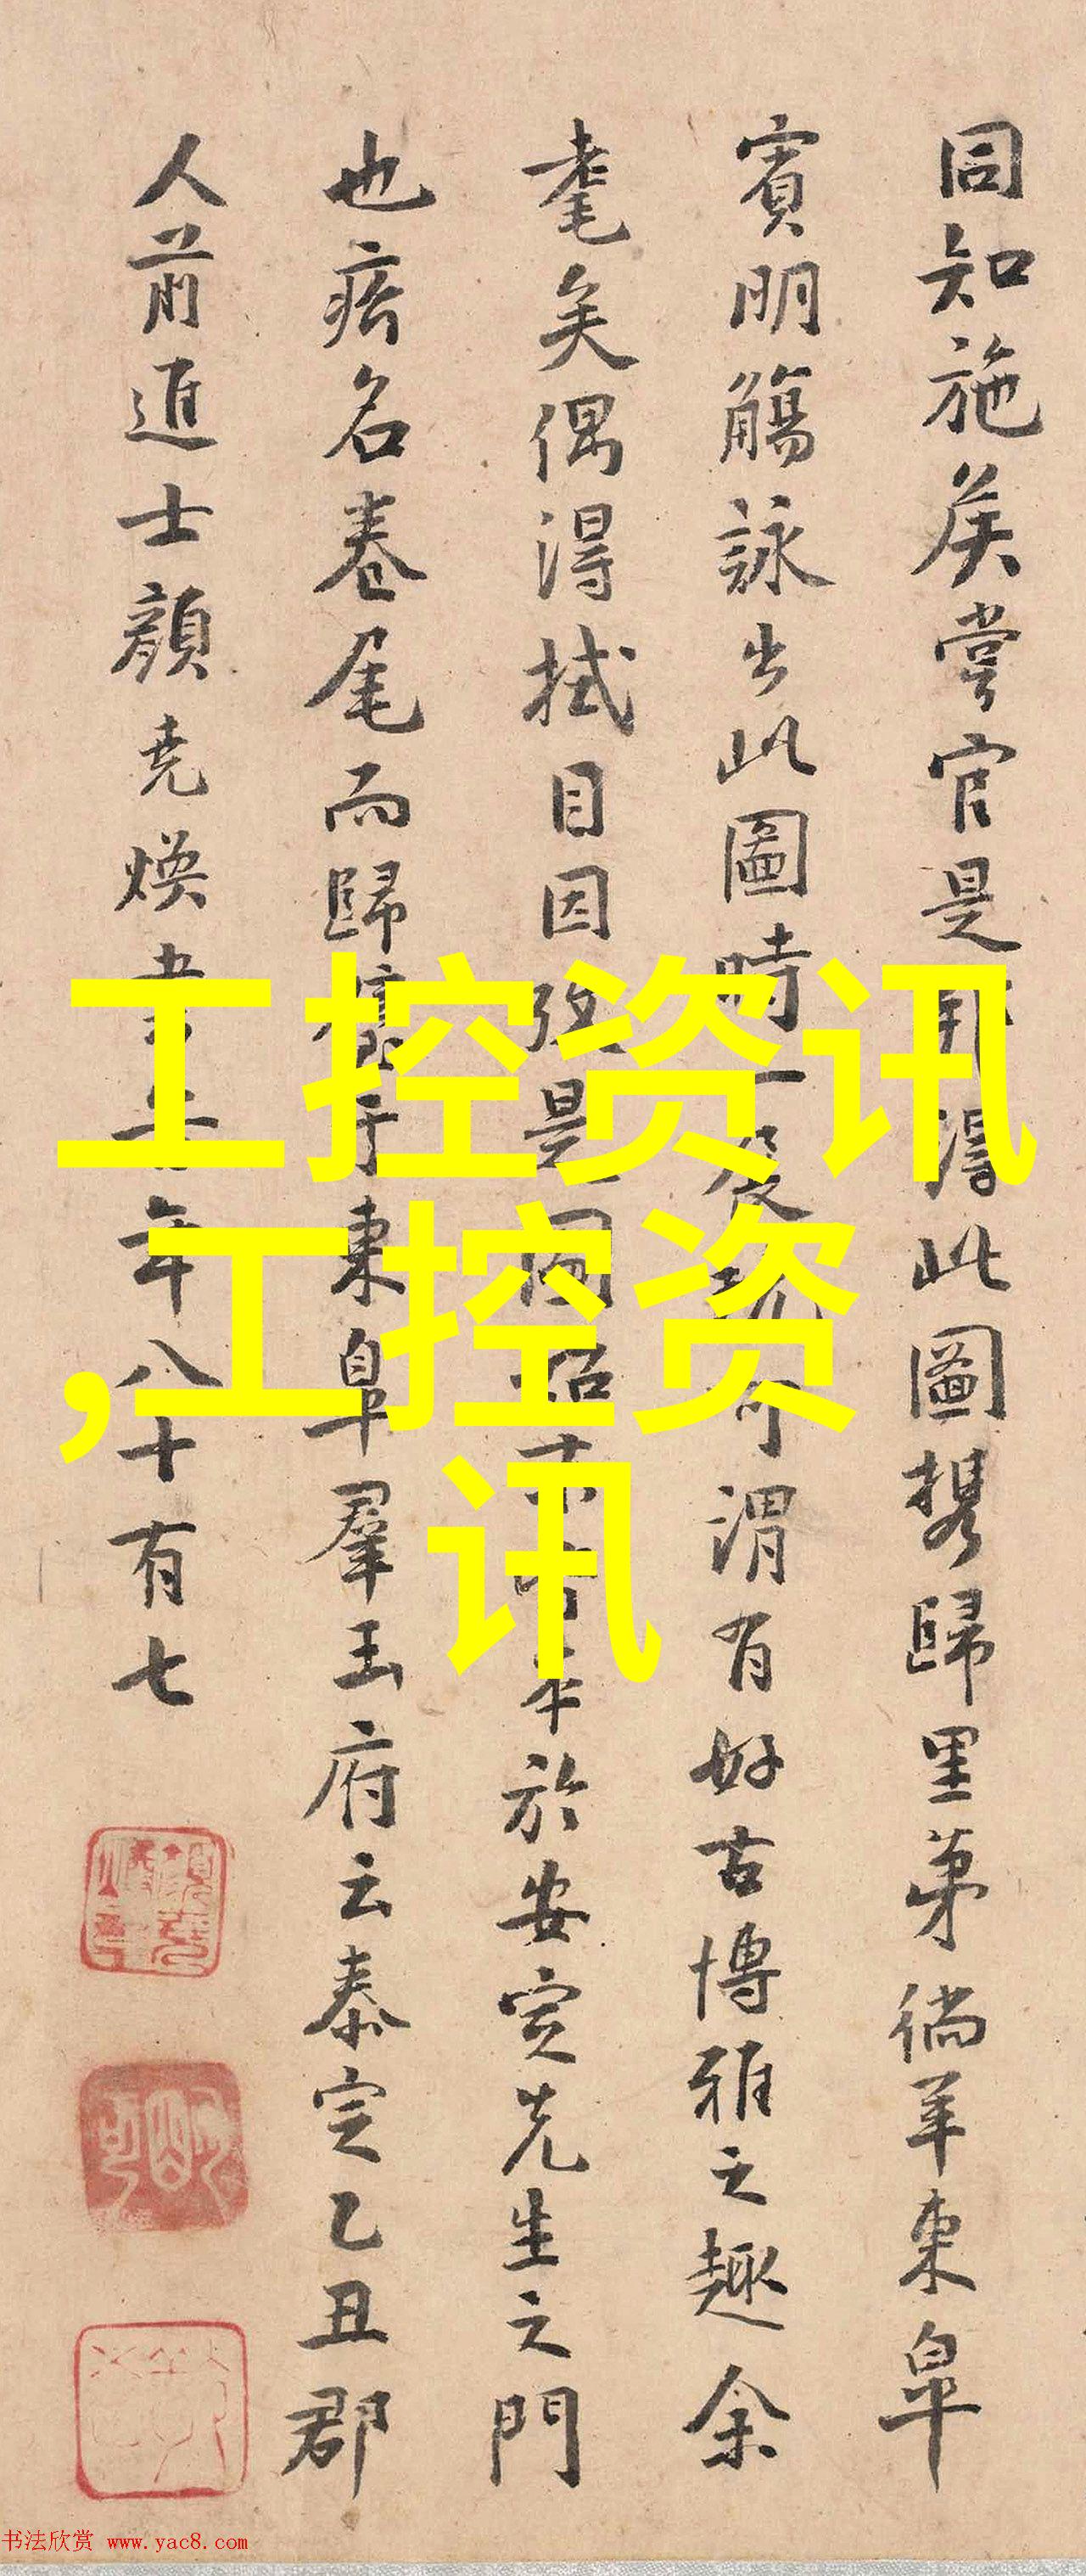 同知施侯嘗官是邦得此圖携歸里第徜羊東皐
賓朋觴詠出此圖時一展玩可謂有好古博雅之趣余
耄矣偶得拭目因攷是圖
於安定先生之門
也瘖名卷尾而歸
于東皐羣玉府云泰定乙丑郡
人前進士顏堯煥書
年八十有七
工控资讯
,工控资
讯
书法欣赏 www.yac8.com